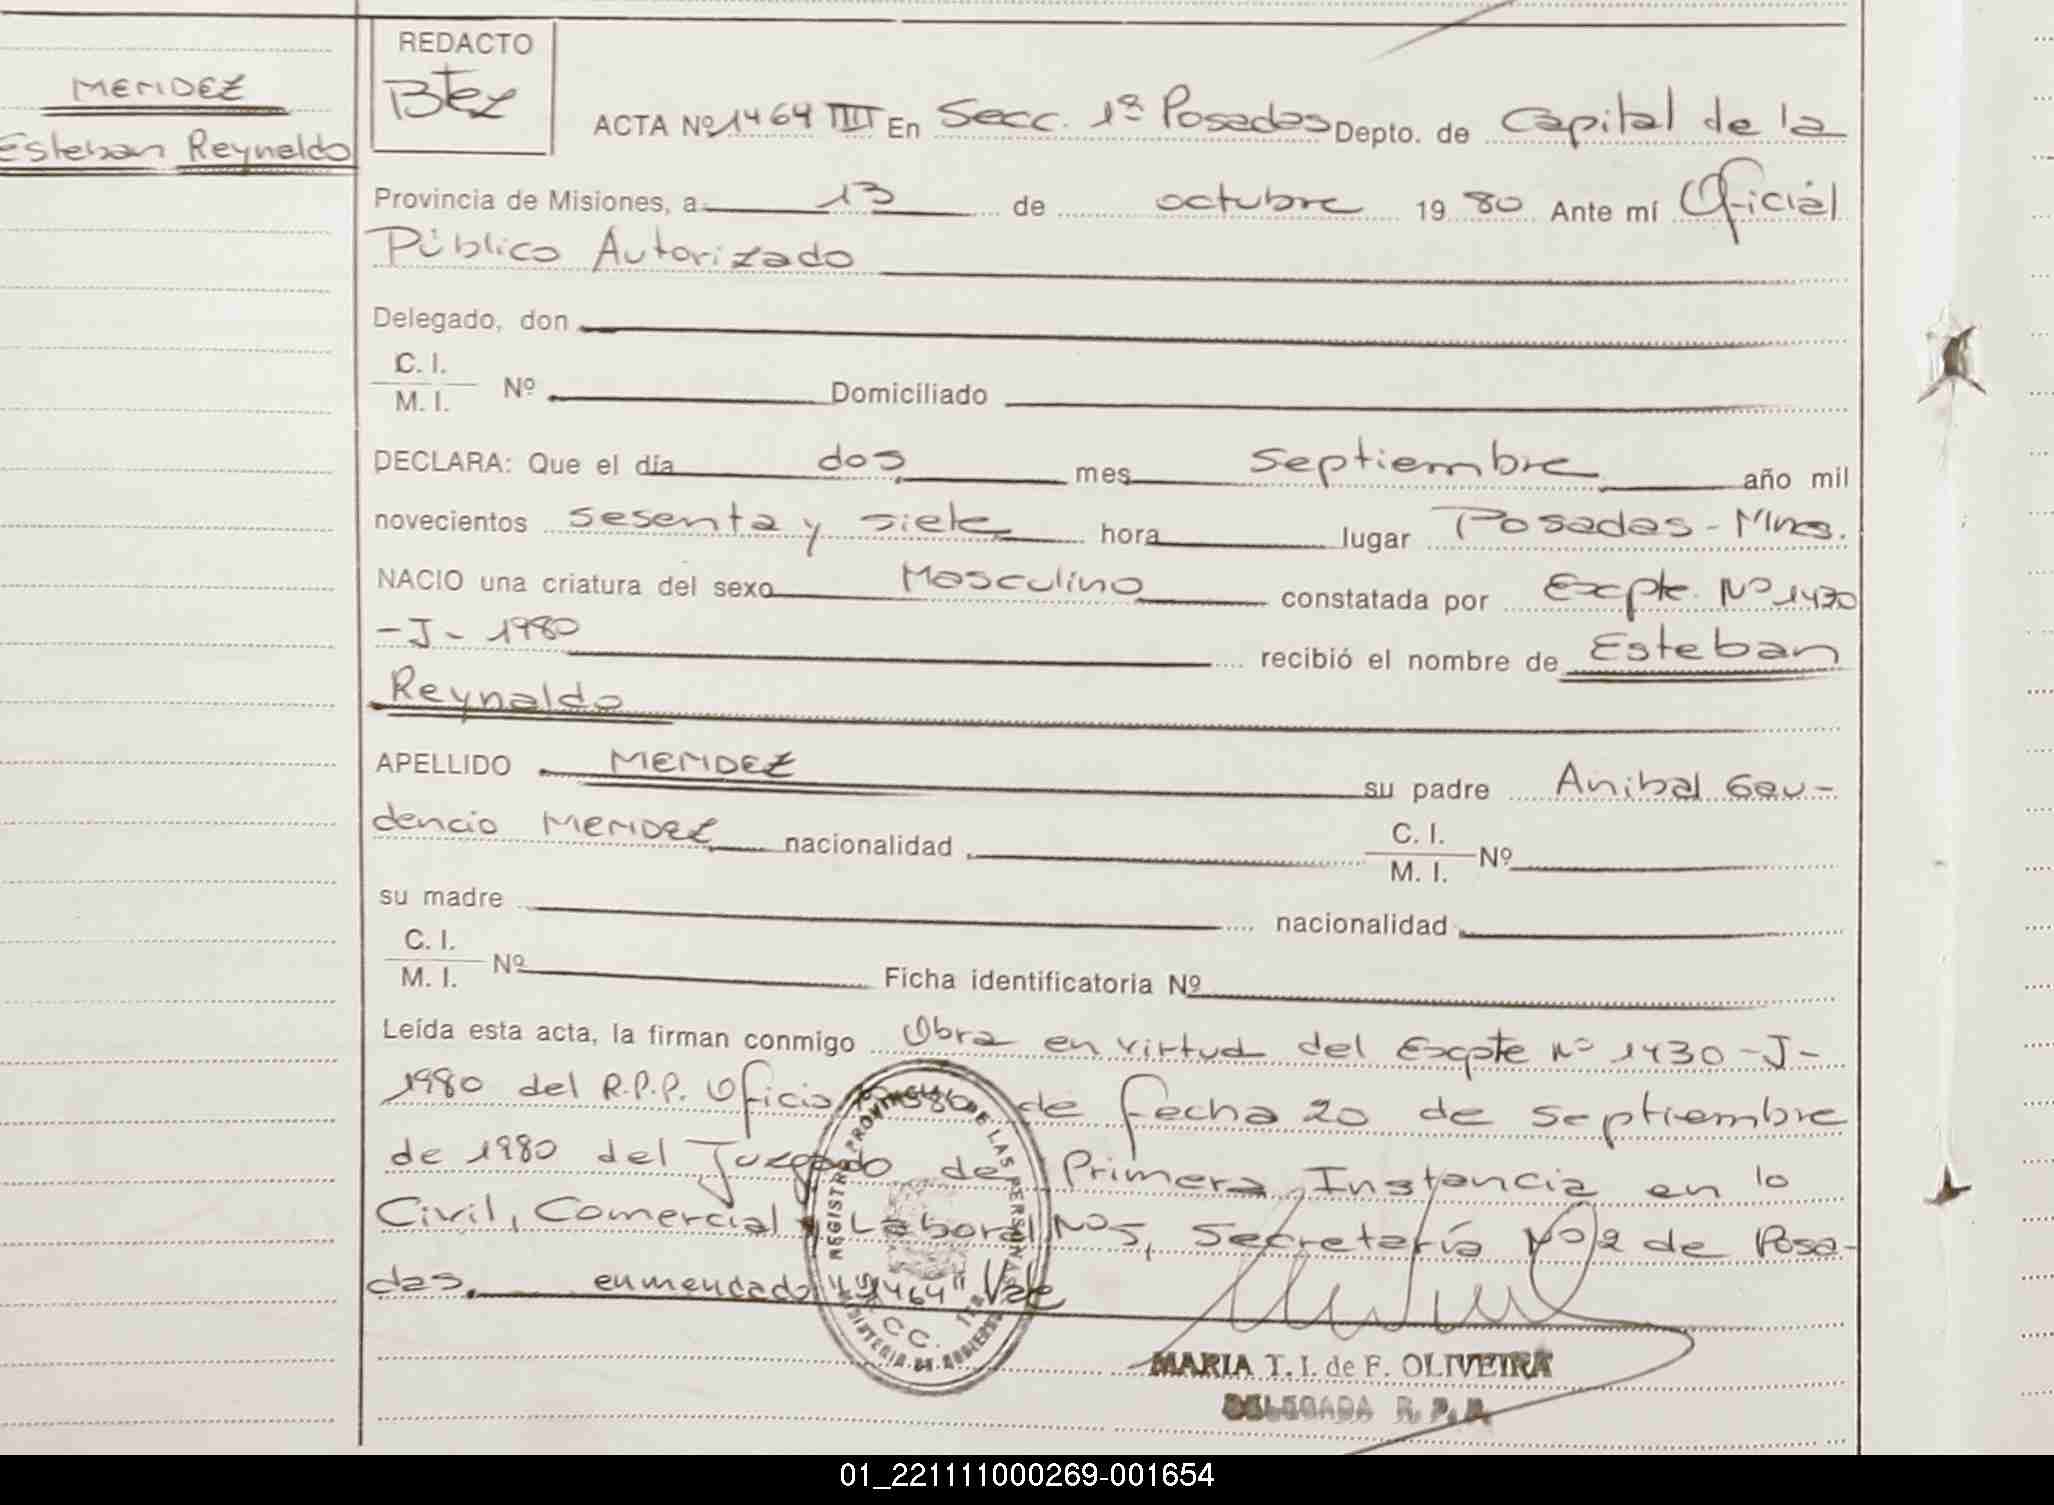 MENDEZ
Esteban Reynaldo
REDACTO
BTez
ACTA Nº 1464 III En Secc. 1ª Posadas Depto. de Capital de la
Provincia de Misiones, a 13 de octubre 1980 Ante mí Oficial
Público Autorizado
Delegado, don
C. I.
M. I. Nº Domiciliado
DECLARA: Que el día dos mes septiembre año mil
novecientos sesenta y siete hora lugar Posadas - Mnes.
NACIO una criatura del sexo Masculino constatada por Excpte. Nº 1430
-J- 1980 recibió el nombre de Esteban
Reynaldo
APELLIDO MENDEZ su padre Anibal Gau-
dencio MENDEZ nacionalidad C. I. M. I. Nº
su madre nacionalidad
C. I.
M. I. Nº Ficha identificatoria Nº
Leída esta acta, la firman conmigo Obra en virtud del Excpte Nº 1430-J-
1980 del R.P.P. Oficio de fecha 20 de septiembre
de 1980 del Juzgado de Primera Instancia en lo
Civil, Comercial y Laboral Nº 5, Secretaría Nº 2 de Posa-
das. enmendado "1464" Vale
REGISTRO PROVINCIAL DE LAS PERSONAS
MINISTERIO DE GOBIERNO
SECC. 1ra
MARIA T. I. de F. OLIVEIRA
DELEGADA R. P. P.
01_221111000269-001654